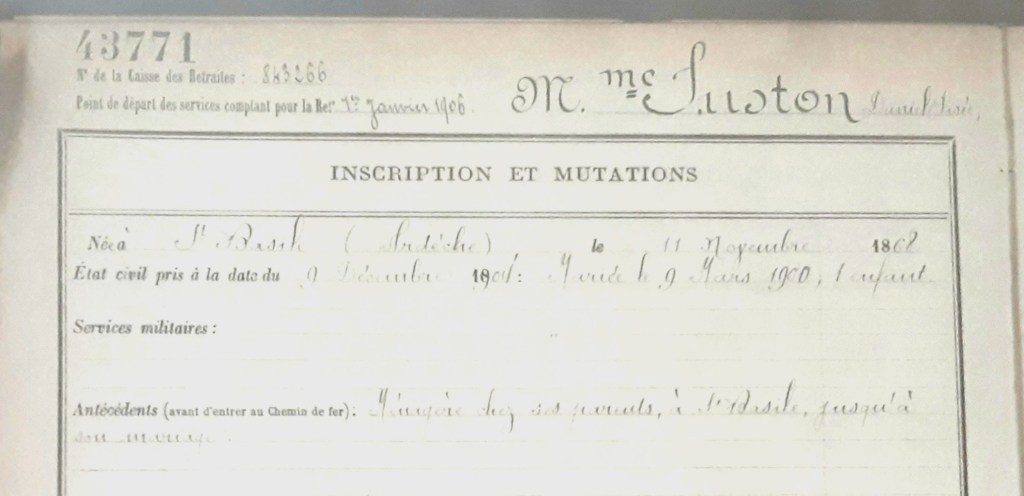 43771
N° de la Caisse des Retraites : 843266
Point de départ des services comptant pour la Ret.te 1er Janvier 1906.
M. me Suston
INSCRIPTION ET MUTATIONS
Née à St Basile (Ardèche) le 11 Novembre 1868
État civil pris à la date du 9 Décembre 190 : Mariée le 9 Mars 1900, 1 enfant.
Services militaires :
Antécédents (avant d'entrer au Chemin de fer) : Ménagère chez ses parents, à St Basile, jusqu'à
son mariage.